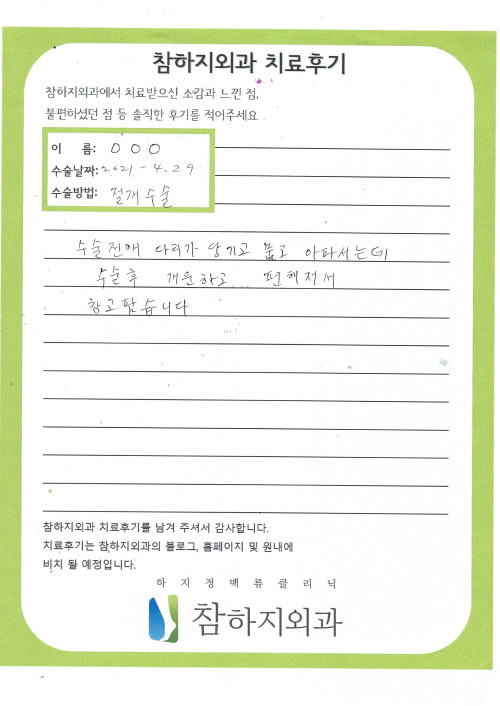 참하지외과 치료후기
참하지외과에서 치료받으신 소감과 느낀 점,
불편하셨던 점 등 솔직한 후기를 적어주세요
이 름: O O O
수술날짜: 2021 - 4. 29
수술방법: 절개수술
수술전에 다리가 당기고 붓고 아파서는데
수술후 개운하고... 편해저서
참고맙습니다
참하지외과 치료후기를 남겨 주셔서 감사합니다.
치료후기는 참하지외과의 블로그, 홈페이지 및 원내에
비치 될 예정입니다.
하지정맥류클리닉
참하지외과